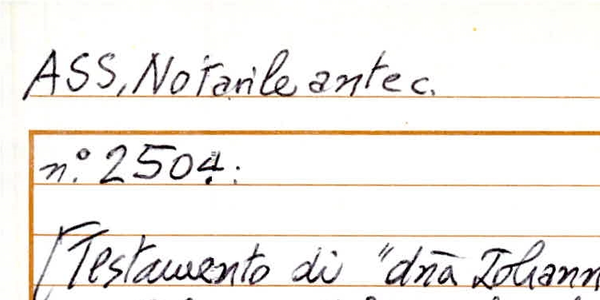 ASS, Notarile antec.
n.° 2504:
Testamento di "dña Iohann